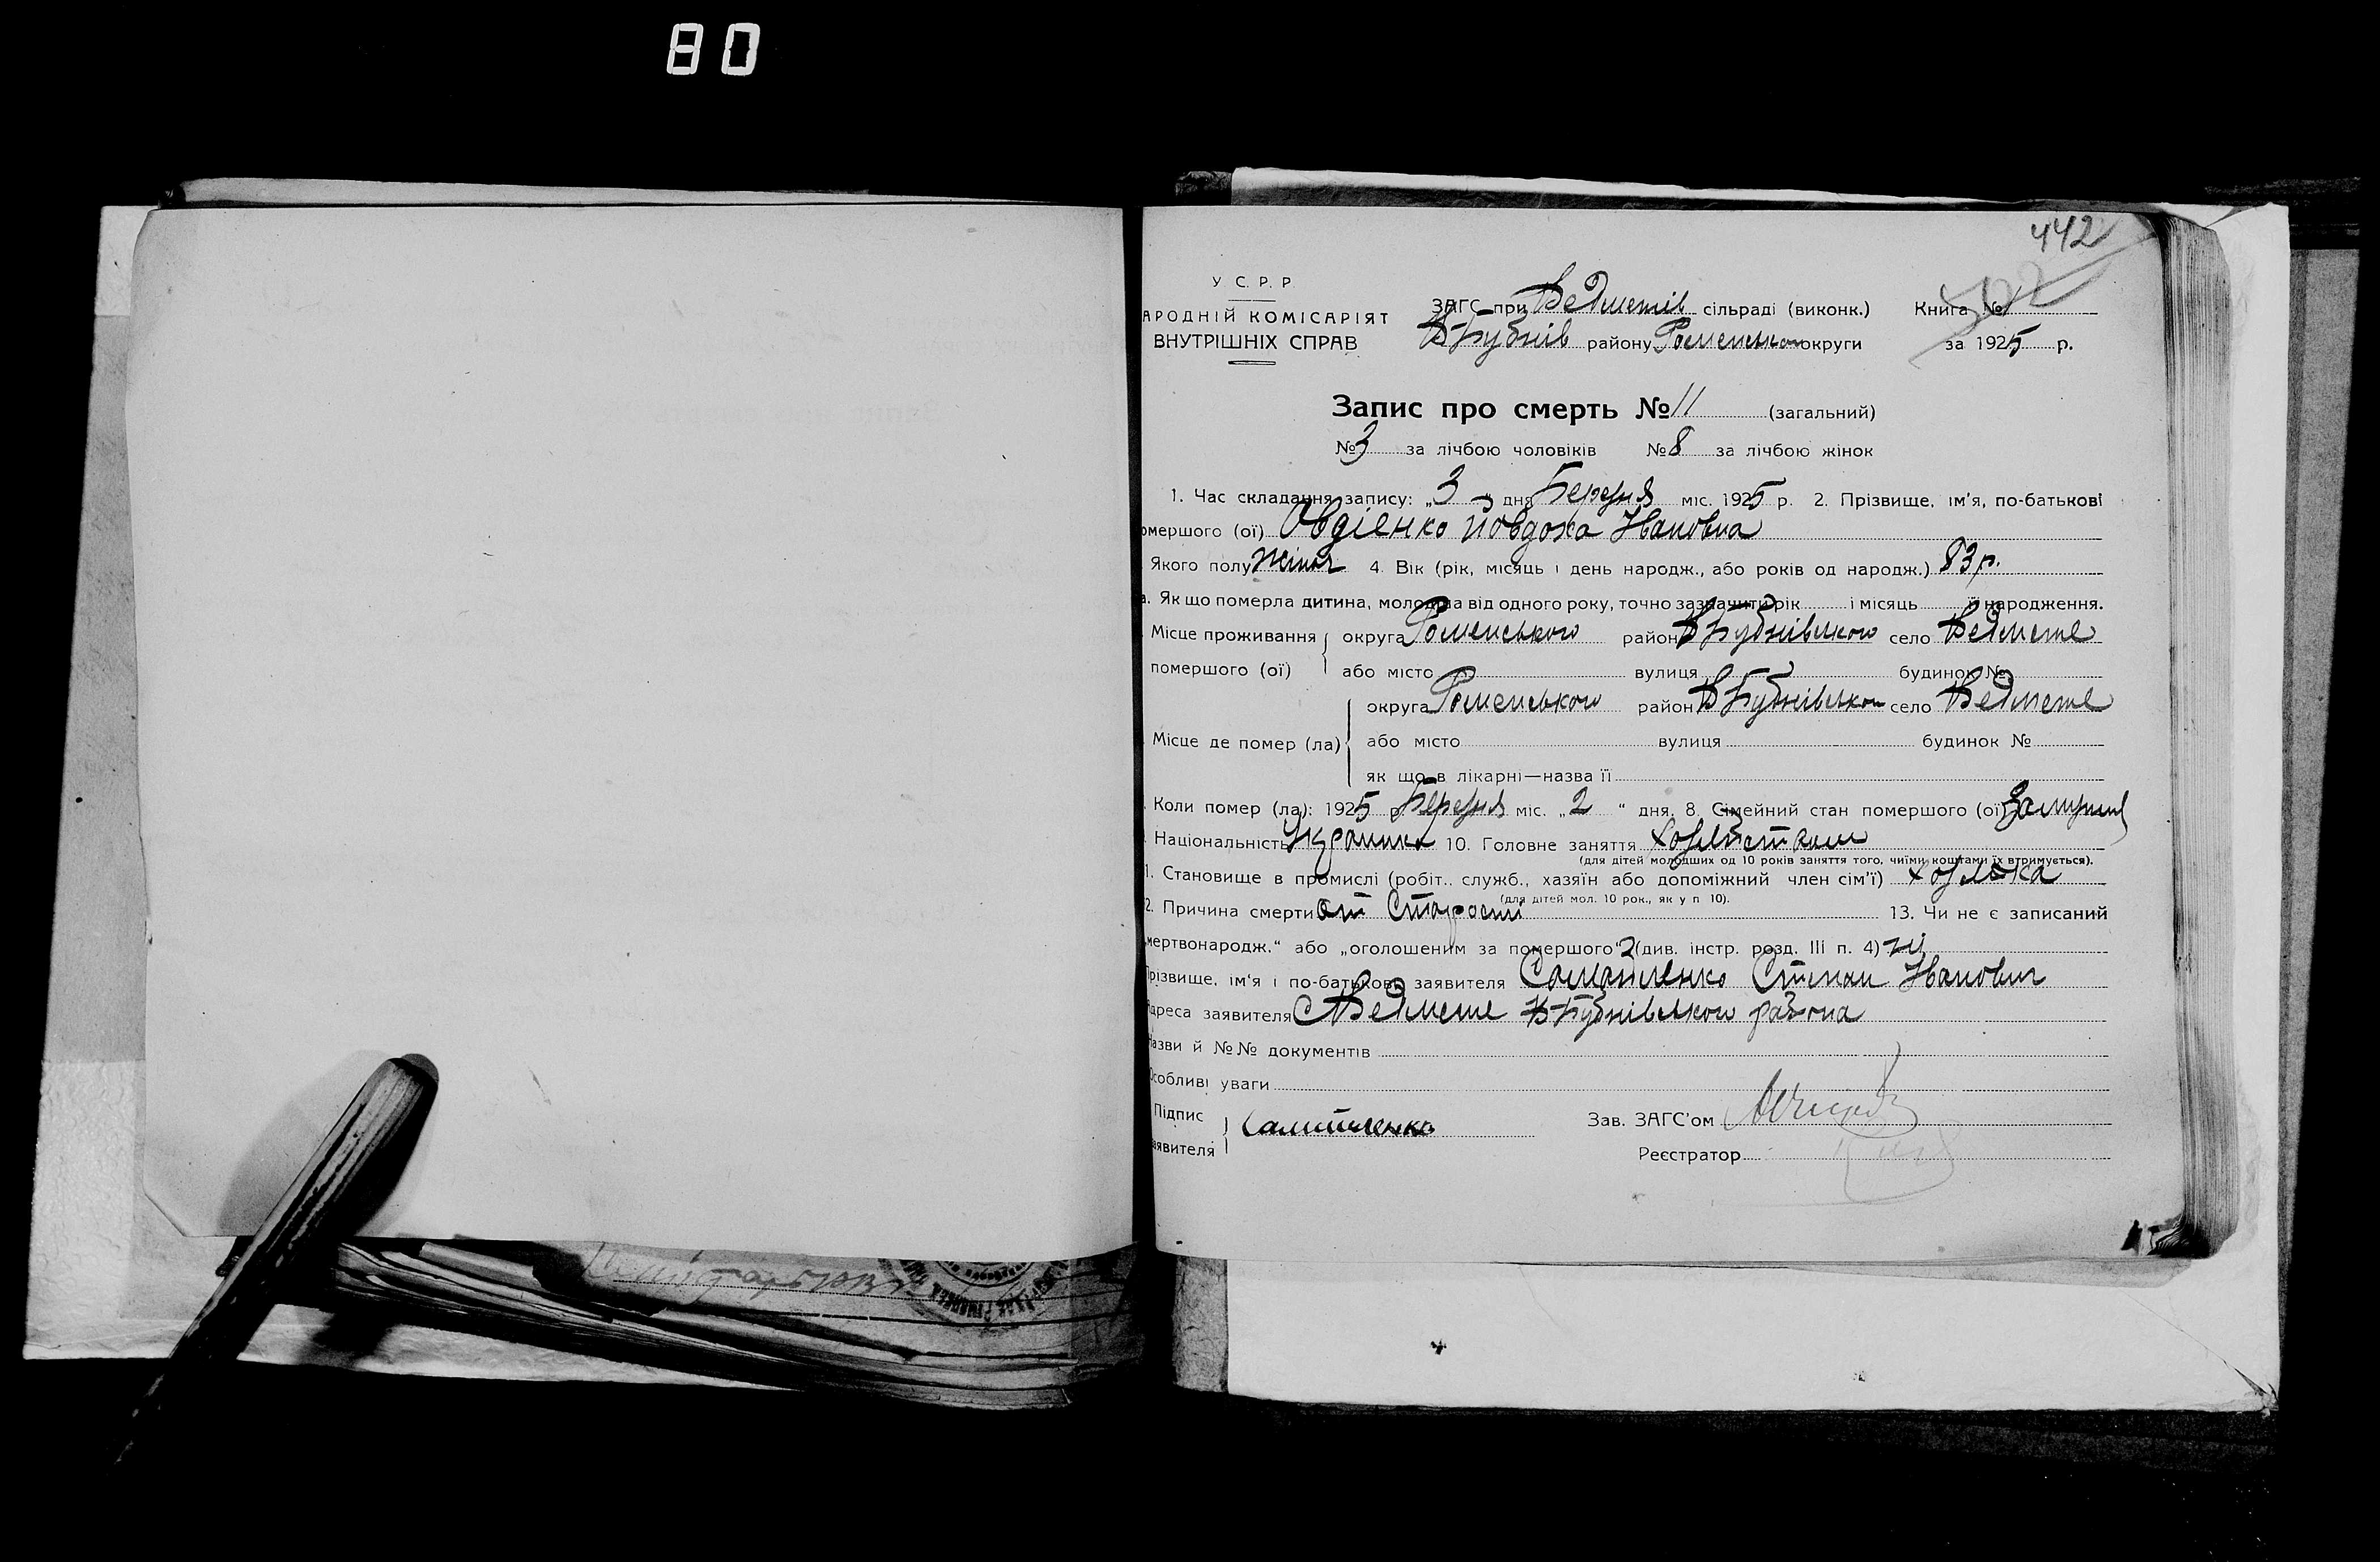 80
442
У С. Р. Р
АРОДНІЙ КОМІСАРІЯТ
ВНУТРІШНІХ СПРАВ
ЗАГС при Ведметів сільраді (виконк.) Книга №
В Бубнів району Роменської округи за 1925 р.
Запис про смерть № 11 (загальний)
№ 3 за лічбою чоловіків № 8 за лічбою жінок
1. Час складання запису: „ 3 " дня Березня міс. 1925 р. 2. Прізвище, ім'я, по-батькові
омершого (ої) Овдіенко Йовдоха Ивановна
Якого полу жіноч 4. Вік (рік, місяць і день народж., або років од народж.) 83 р.
а. Як що померла дитина, молодша від одного року, точно зазначити рік і місяць її народження.
Місце проживання округа Роменського район В Бубнівського село Ведмеже
помершого (ої) або місто вулиця будинок №
округа Роменського район В Бубнівсько село Ведмеже
Місце де помер (ла) або місто вулиця будинок №
як що в лікарні—назва її
Коли помер (ла): 1925 р Березня міс. „ 2 " дня. 8. Сімейний стан помершого (ої)
Національність Украинка 10. Головне заняття
(для дітей молодших од 10 років заняття того, чиїми коштами їх втримується).
1. Становище в промислі (робіт.. служб., хазяїн або допоміжний член сім'ї) хозяйка
(для дітей мол. 10 рок., як у п 10).
2. Причина смерти от Старости 13. Чи не є записаний
мертвонародж." або „оголошеним за помершого" (див. інстр. розд. III п. 4) ні
Прізвище, ім'я і по-батькові заявителя Самотиенко Степан Иванович
дреса заявителя С Ведмеже В Бубнівського района
азви й №№ документів
Особливі уваги
Підпис
аявителя
Зав. ЗАГС'ом
Реєстратор